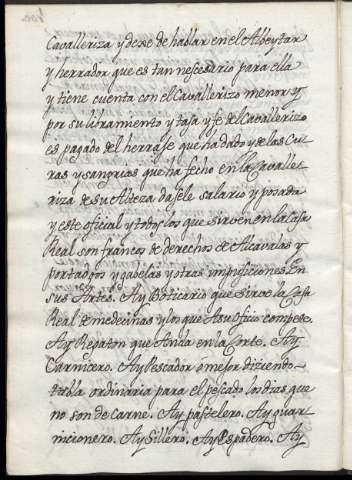 Cavalleriza y dexe de hablar en el Albeytar
y herrador que es tan nescesario para ella
y tiene cuenta con el Cavallerizo menor y
por su libramento y tasa y fe del Cavallerizo
es pagado del herraje que ha dado y de las Cu
ras y sangrias que ha fecho en la Cavalle
riza de su Alteza dasele salario y posada
y este oficial y todos los que sirven en la casa
Real son francos de derechos de Alcavalas y
portadgos y gabelas y otras impusiciones En
sus Artes. Ay Boticario que sirve la Casa
Real de medecinas y lo que A su Oficio compete.
Ay Regaton que Anda en la Corte. Ay
Carnicero. Ay Pescador ó mejor diziendo
tabla ordinaria para el pescado los dias que
no son de carne. Ay pastelero. Ay guar
nicionero. Ay Sillero. Ay Espadero. Ay